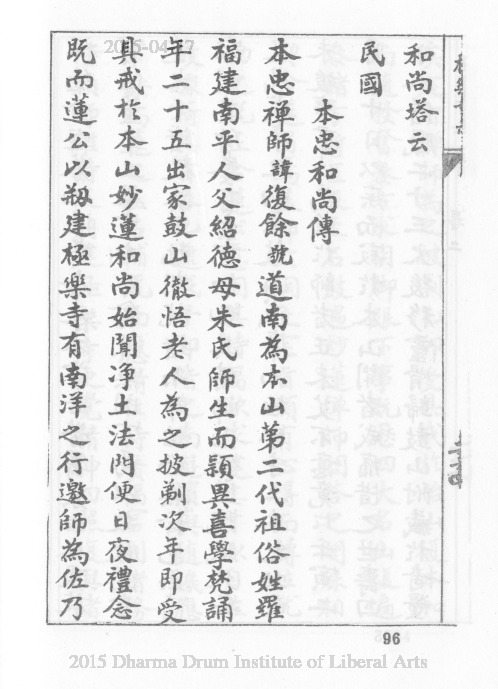 2015-04-17
和尚塔云
民國
本忠和尚傳
本忠禅師諱復餘號道南為本山第二代祖俗姓羅
福建南平人父紹德母朱氏師生而頴異喜學梵誦
年二十五出家鼓山徹悟老人為之披剃次年即受
具戒於本山妙蓮和尚始聞净土法門便日夜禮念
既而蓮公以剏建極樂寺有南洋之行邀師為佐乃
96
2015 Dharma Drum Institute of Liberal Arts